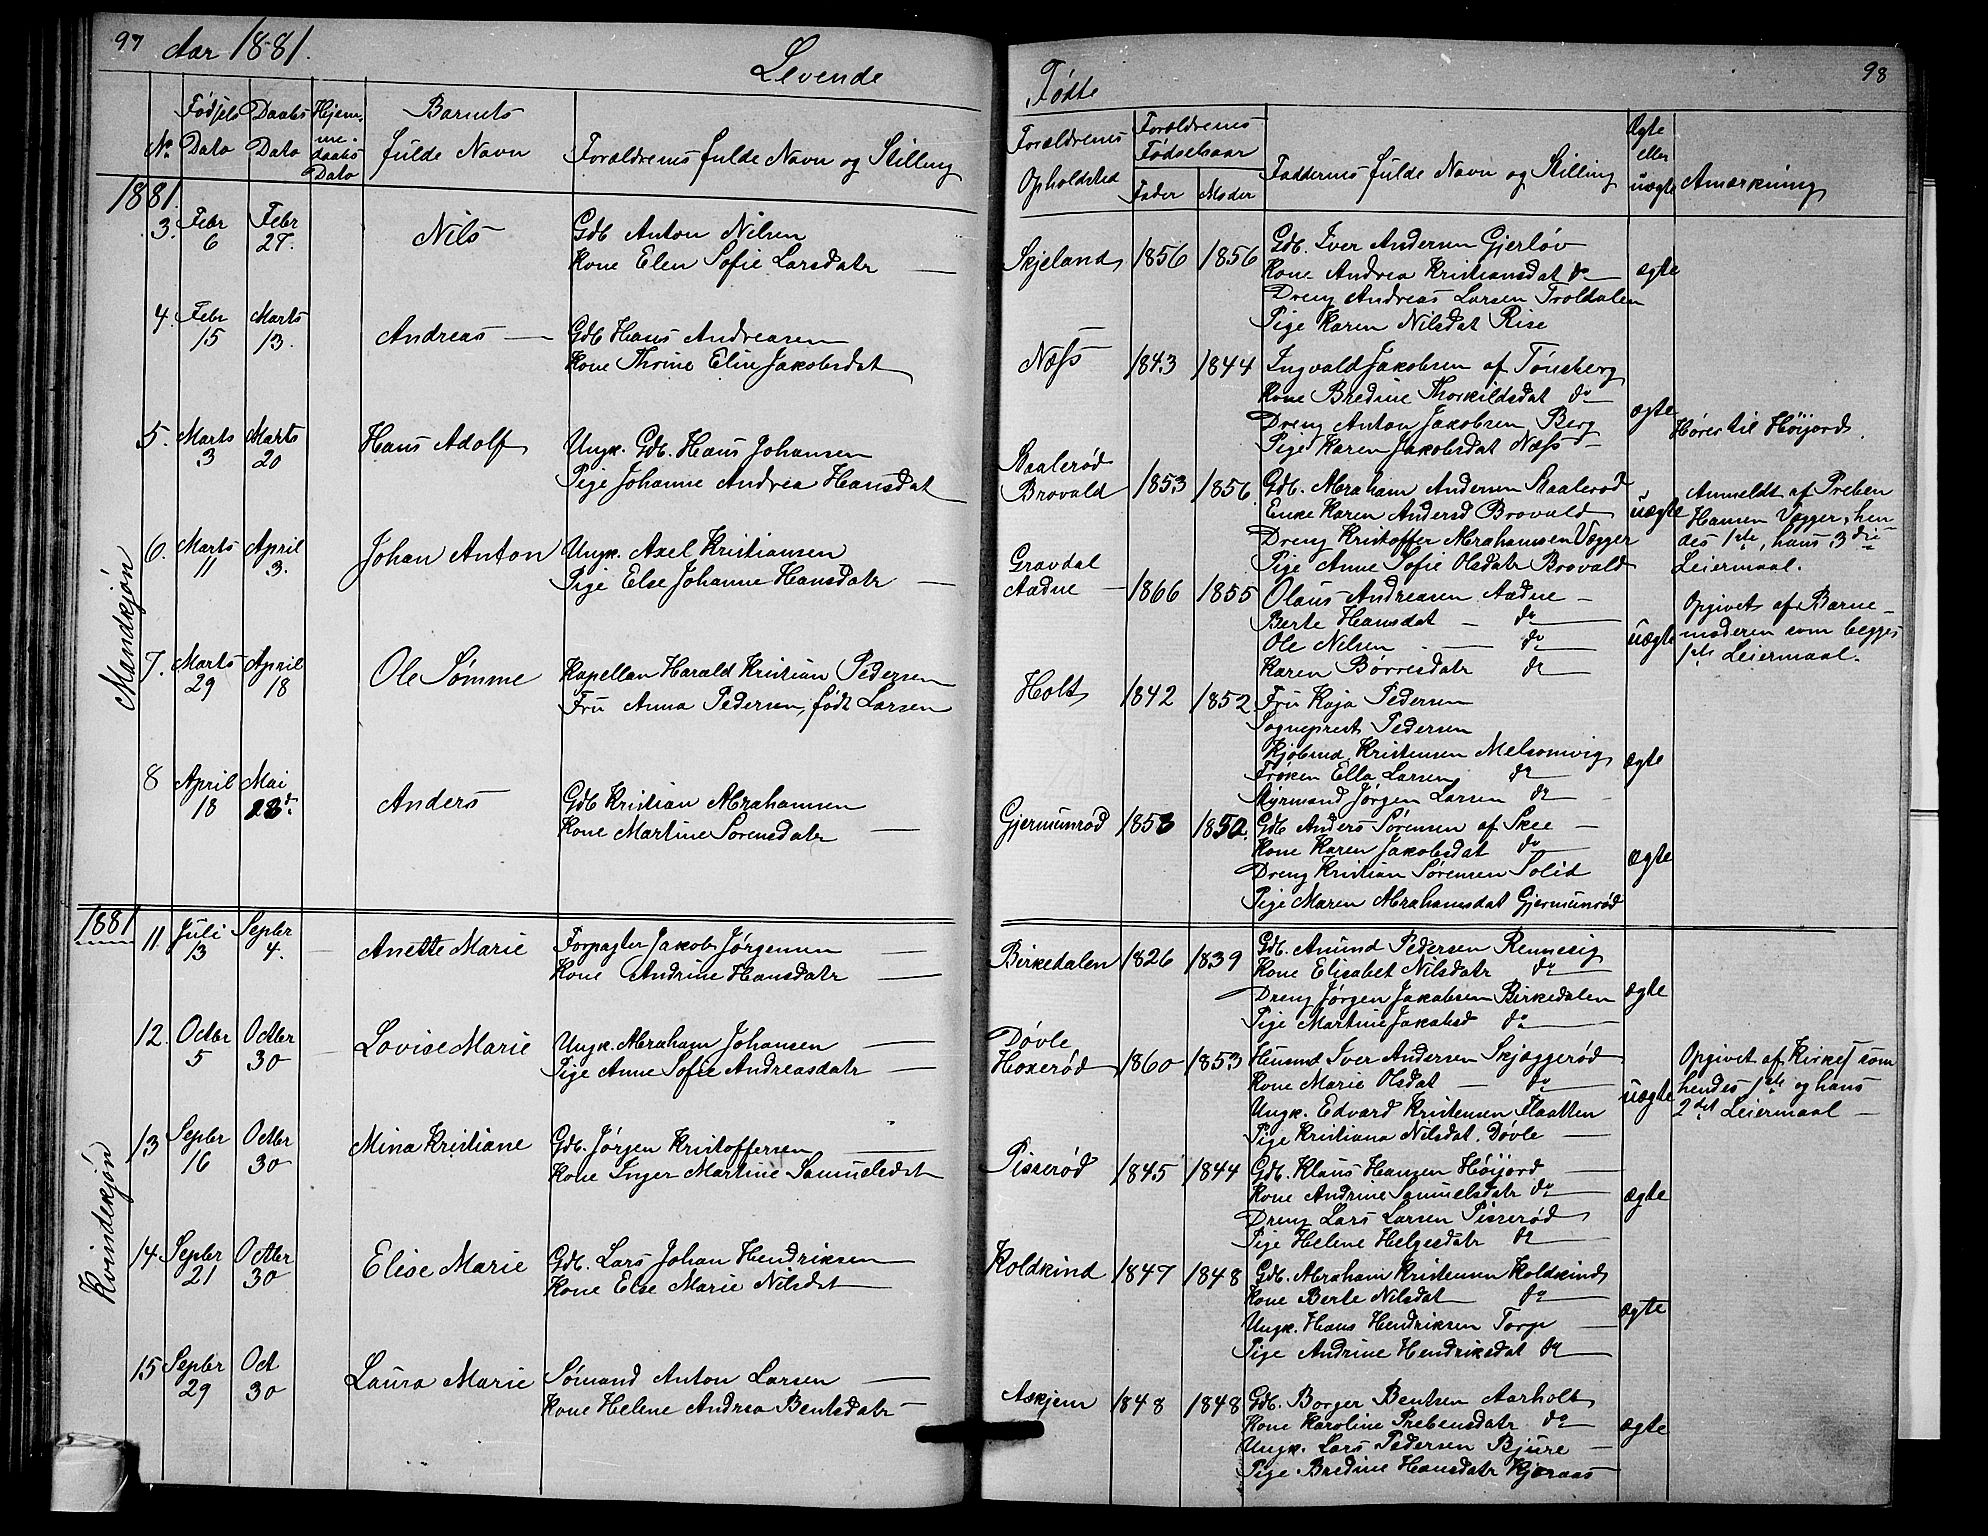 97 Aar 1881. Levende
No. Fødsels Dato Daabs Dato Hjemmedaabs Dato Barnets fulde Navn Forældrenes fulde Navn og Stilling
Mandkjøn
1881.
3. Febr 6 Febr 27. Nils Gdb Anton Nilsen
Kone Elen Sofie Larsdatr
4. Febr 15 Marts 13. Andreas Gdb Hans Andreasen
Kone Thrine Elin Jakobsdat
5. Marts 3 Marts 20 Hans Adolf Ungk. Gdb. Hans Johansen
Pige Johanne Andrea Hansdat
6. Marts 11 April 3. Johan Anton Ungk. Axel Kristiansen
Pige Else Johanne Hansdatr
7. Marts 29 April 18 Ole Sømme Kapellan Harald Kristian Pedersen
Fru Anna Pedersen, født Larsen
8 April 18 Mai 28d. Anders Gdb Kristian Abrahamsen
Kone Martine Sørensdatr
Kvindekjøn
1881
11. Juli 13 Septbr 4. Anette Marie Forpagter Jakob Jørgensen
Kone Andrine Hansdatr
12. Octbr 5 Octbr 30 Lovise Marie Ungk. Abraham Johansen
Pige Anne Sofie Andreasdatr
13 Septbr 16 Octbr 30 Mina Kristiane Gdb. Jørgen Kristoffersen
Kone Inger Martine Samuelsdat
14. Septbr 21 Octbr 30 Elise Marie Gdb. Lars Johan Hendriksen
Kone Else Marie Nilsdat
15 Septbr 29 Oct 30 Laura Marie Sømand Anton Larsen
Kone Helene Andrea Bentsdatr
Fødte 98
Forældrenes Opholdsted Forældrenes Fødselsaar Fader Moder Faddernes fulde Navn og Stilling Ægte eller uægte Anmærkning
Skjeland 1856 1856 Gdb. Iver Andersen Gjerløv
Kone Andrea Kristiansdat do
ægte
Dreng Andreas Larsen Troldalen
Pige Karen Nilsdat Rise
Næss 1843 1844 Ingvald Jakobsen af Tønsberg
Kone Bredine Thorkildsdat do
ægte
Dreng Anton Jakobsen Berg
Hører til Höijord.
Pige Karen Jakobsdat Næss
Raalerød
Brovald 1853 1856 Gdb. Abraham Andersen Raalerød
Enke Karen Andersd Brovald
uægte
Dreng Kristoffer Abrahamsen Vegger
Pige Anne Sofie Olsdatr Brovald
Anmeldt af Preben
Hansen Vegger, hen-
des 1ste, hans 3die
Leiermaal.
Gravdal
Aadne 1866 1855 Olaus Andreasen Aadne
Berte Hansdat do
Ole Nilsen do
uægte
Karen Börresdatr do
Opgivet af Barne-
moderen som begges
1ste Leiermaal.
Holt 1842 1852 Fru Kaja Pedersen
Sogneprest Pedersen
Kjøbmd Kristensen Melsomvig
ægte
Frøken Ella Larsen do
Styrmand Jørgen Larsen do
Gjermunrød 1853 1852. Gdb Anders Sørensen af Skee
Kone Karen Jakobsdat do
ægte
Dreng Kristian Sørensen Solid
Pige Maren Abrahamsdat Gjermunrød
Birkedalen 1826 1839 Gdb. Amund Pedersen Rennesig
Kone Elisabet Nilsdatr do
ægte
Dreng Jørgen Jakobsen Birkedalen
Pige Martine Jakobsd do
Døvle
Hoxerød 1860 1853 Husmd Iver Andersen Skjæggerød
Kone Marie Olsdat do
uægte
Ungk. Edvard Kristensen Flaatten
Pige Kristiana Nilsdat. Døvle
Opgivet af Kirkes som
hendes 1ste og hans
2det Leiermaal
Pisserød 1845 1844 Gdb. Klaus Hansen Høijord
Kone Andrine Samuelsdatr do
ægte
Dreng Lars Larsen Pisserød
Pige Helene Helgesdatr do
Koldkind 1847 1848 Gdb. Abraham Kristensen Koldkind
Kone Berte Nilsdat do
ægte
Ungk. Hans Hendriksen Torp
Pige Andrine Hendriksdat do
Askjem 1848 1848 Gdb. Borger Bentsen Aarholt
Kone Karoline Prebensdatr do
ægte
Ungk. Lars Pedersen Bjure
Pige Bredine Hansdatr Kjæraas